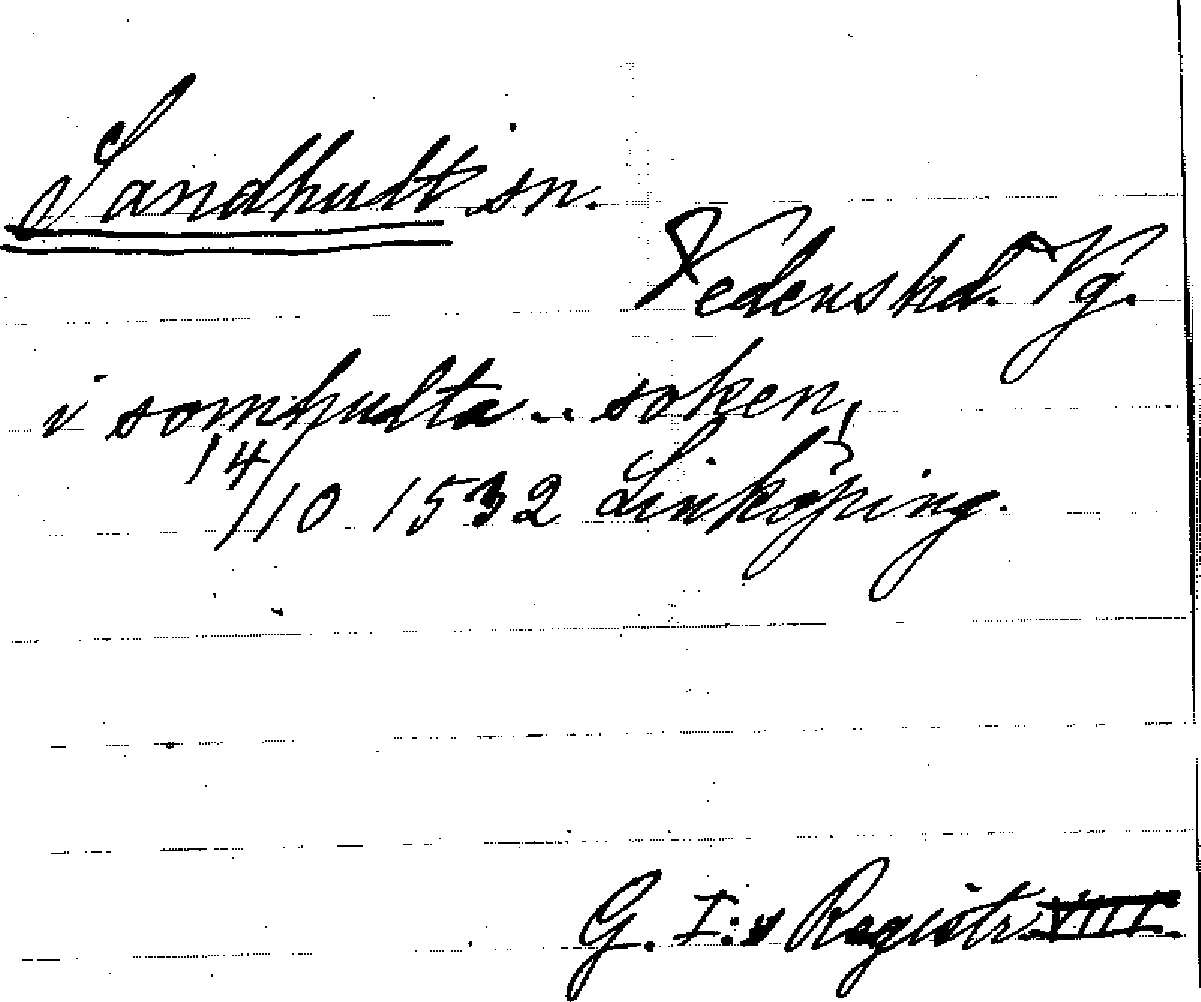 Sandhult sn.
Vedens hd. Vg.
i somhulta .. soken,
14/10 1532 Linköping.
G. I:s Registr. VIII.